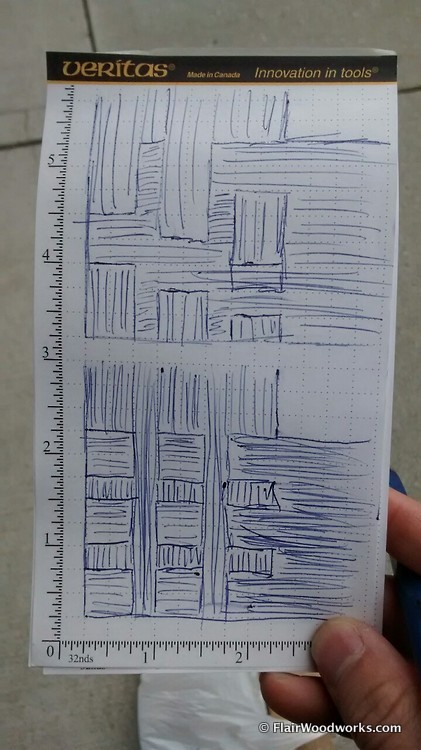 veritas® Made in Canada Innovation in tools®
5
4
3
2
1
0
32nds
1
2
© FlairWoodworks.com